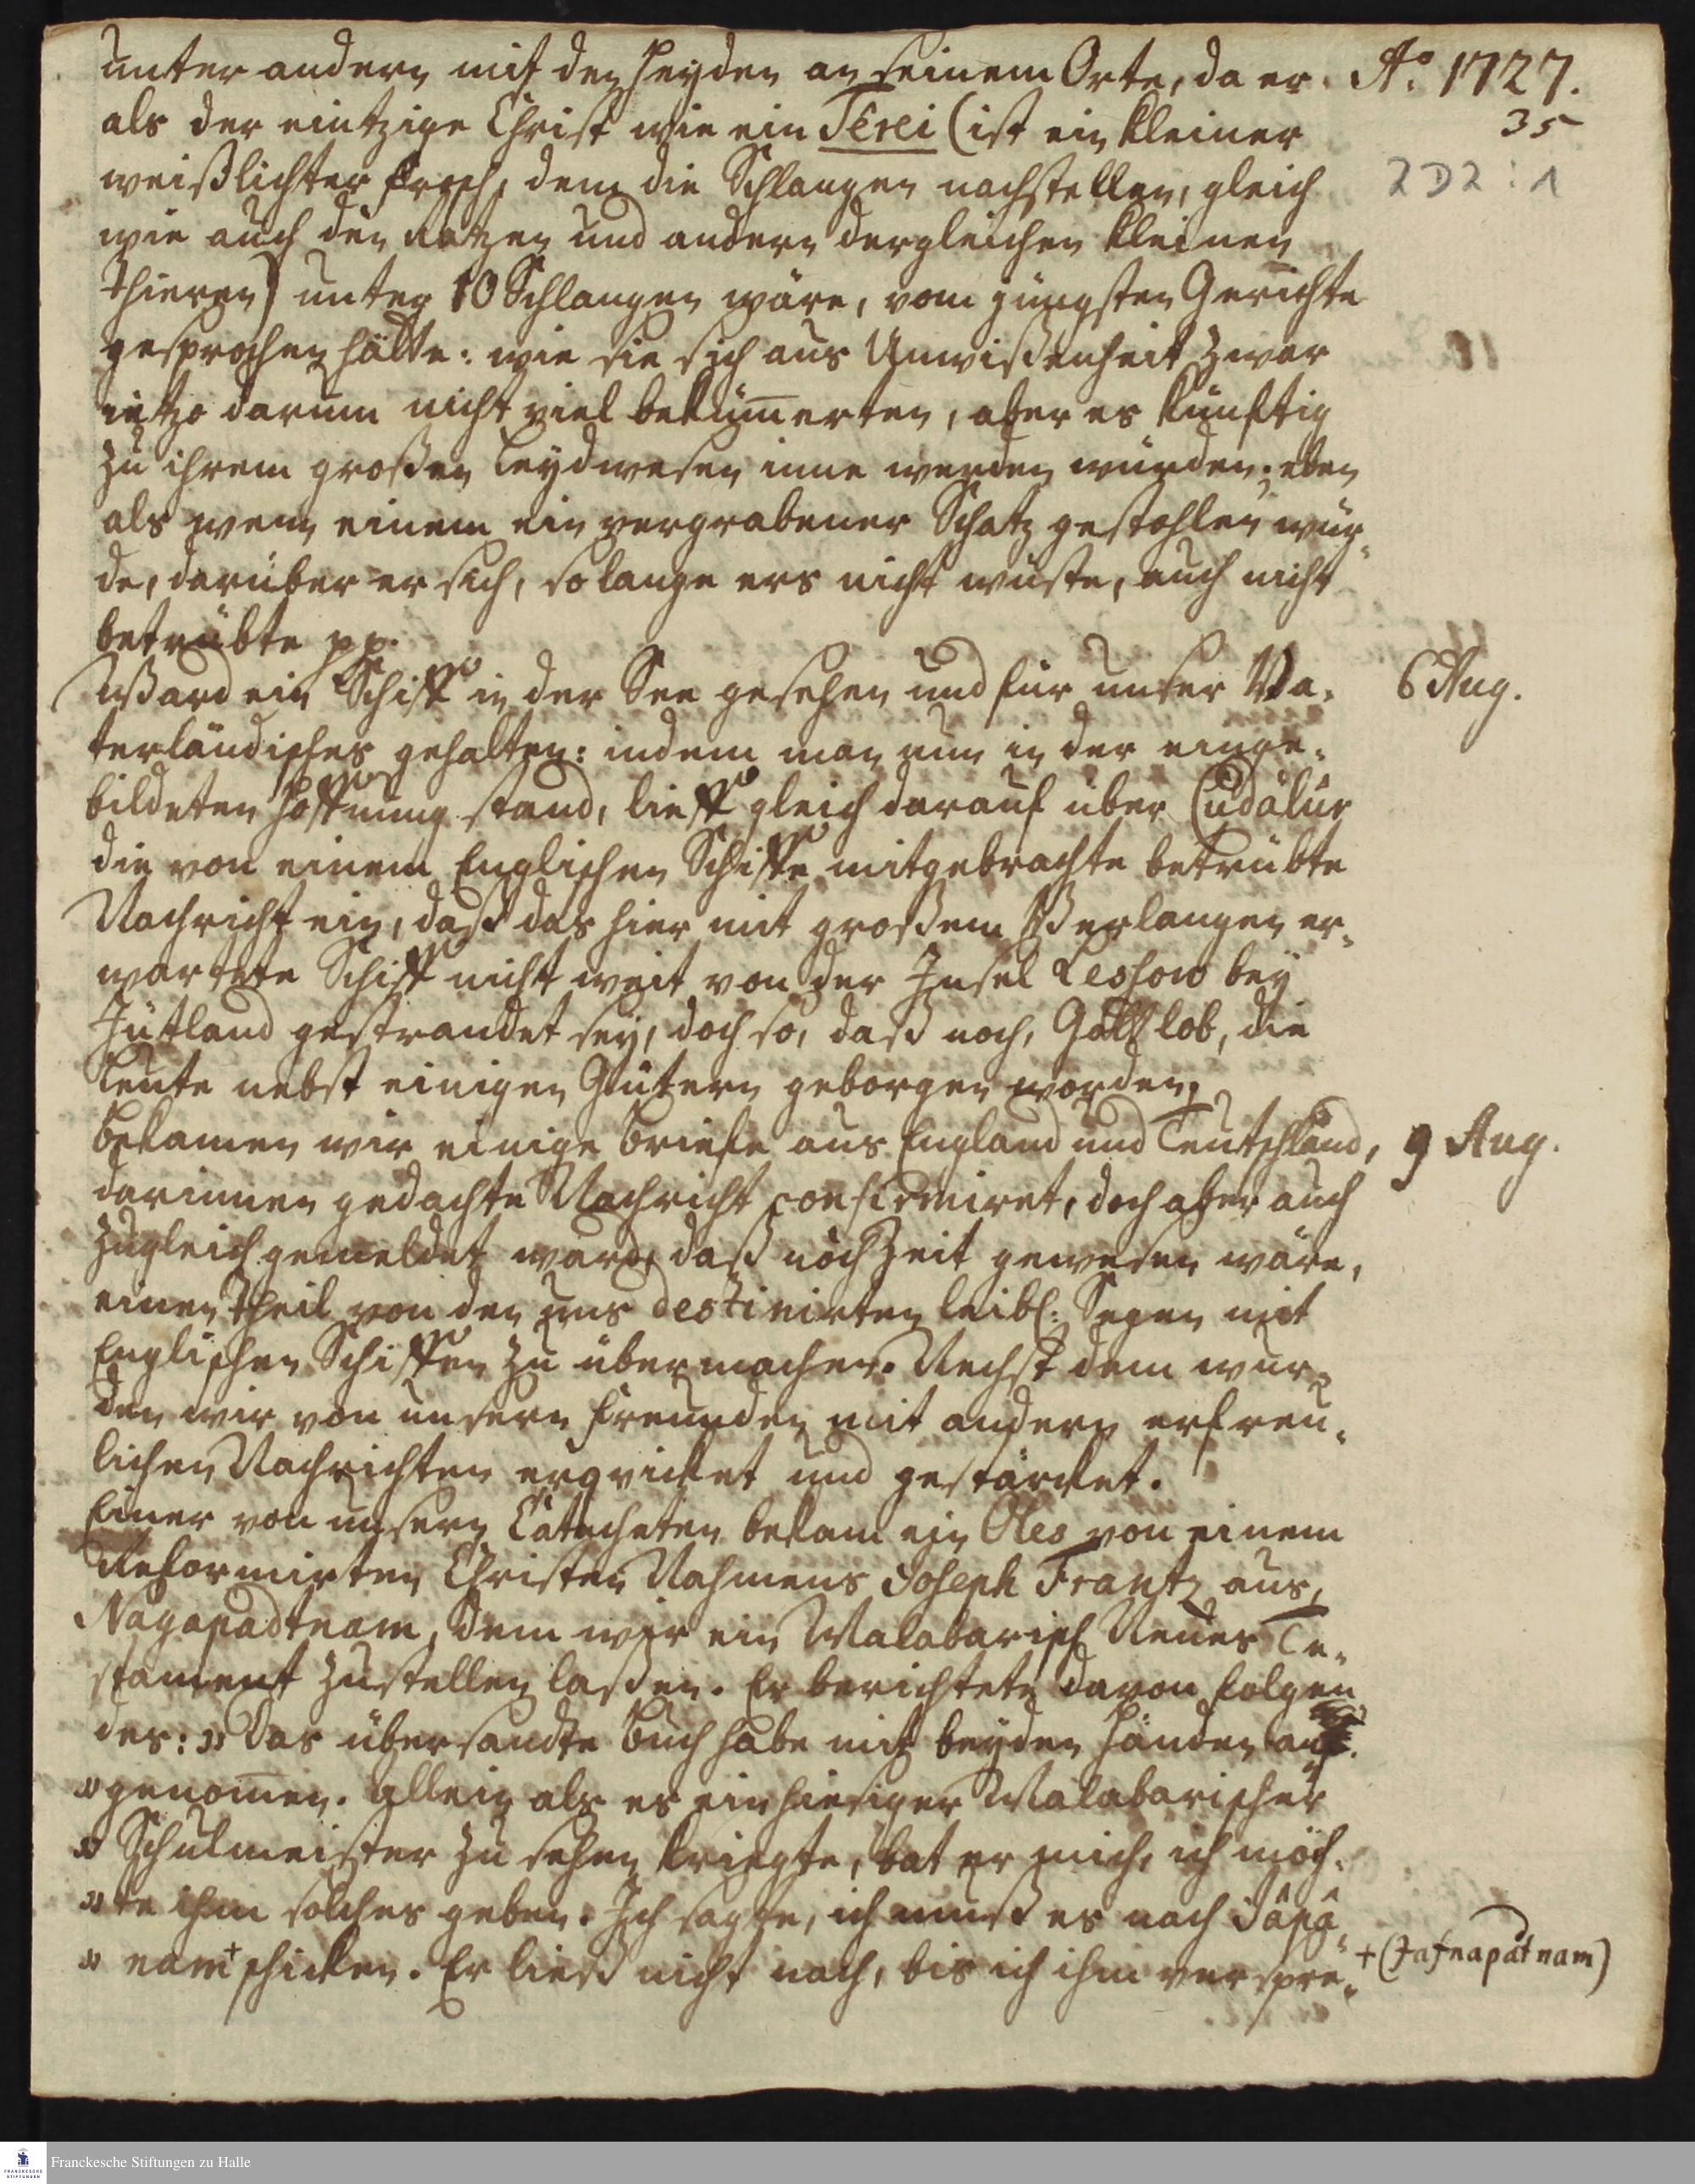 unter andern mit den Heyden an seinem Orte, da er A.o 1727.
als der eintzige Christ wie ein Têrei (ist ein kleiner 35
weißlichter frosch, dem die Schlangen nachstellen, gleich 2D2:1
wie auch den Ratzen und andern dergleichen kleinen
Thieren) unter 10 Schlangen wäre, vom jüngsten Gerichte
gesprochen hätte: wie sie sich aus Unwißenheit zwar
ietzo darum nicht viel bekum̅erten, aber es künftig
zu ihrem großen Leydwesen inne werden würden; eben
als wenn einem ein vergrabener Schatz gestohlen wür-
de, darüber er sich, so lange ers nicht wüste, auch nicht
betrübte pp.
Ward ein Schiff in der See gesehen und für unser Va- 6 Aug.
terländisches gehalten: indem man nun in der einge-
bildeten Hoffnung stand, lieff gleich darauf über Cudâlûr
die von einem Englischen Schiffe mitgebrachte betrübte
Nachricht ein, daß das hier mit großem Verlangen er-
wartete Schiff nicht weit von der Insel Lessow bey
Jütland gestrandet sey, doch so, daß noch, Gott lob, die
Leute nebst einigen Gütern geborgen worden.
Bekamen wir einige Briefe aus England und Teutschland, 9 Aug.
darinnen gedachte Nachricht confirmiret, doch aber auch
zugleich gemeldet ward, daß noch Zeit gewesen wäre,
einen Theil von den uns destinirten leibl: Segen mit
Englischen Schiffen zu übermachen. Nechst dem wur-
den wir von unsern Freunden mit andern erfreu-
lichen Nachrichten erqvicket und gestärcket.
Einer von unsern Catecheten bekam ein Oles von einem
Reformirten Christen Nahmens Joseph Frantz aus
Nagapadtnam, dem wir ein Malabarisch Neues Te-
stament zustellen laßen. Er berichtete davon folgen
des: » Das übersandte Buch habe mit beyden Händen an-
» genom̅en. Allein als es ein hiesiger Malabarischer
» Schulmeister zu sehen kriegte, bat er mich, ich möch-
» te ihm solches geben. Ich sagte, ich muß es nach Jâpâ-
» nam + schicken. Er ließ nicht nach, bis ich ihm verspre- + (Jafnapatnam)
Franckesche Stiftungen zu Halle